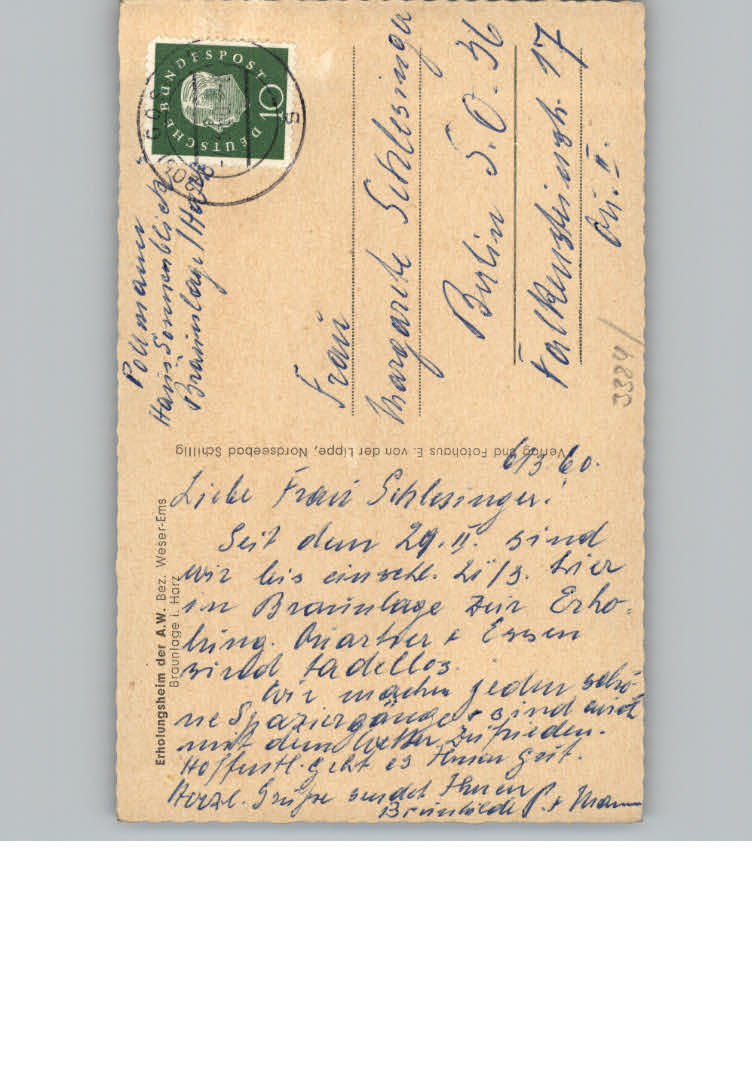 Erholungsheim der A.W. Bez. Weser-Ems
Braunlage i. Harz
6/3 60.
Liebe Frau Schlesinger!
Seit dem 29. II. sind
wir bis einschl. 21/3. hier
in Braunlage zur Erho-
lung. Quartier + Essen
sind tadellos.
Wir machen jeden schö-
ne Spaziergänge + sind auch
mit dem Wetter zufrieden.
Hoffentl. geht es Ihnen gut.
Herzl. Grüße sendet Ihnen
Brunhilde P. + Mann
Verlag und Fotohaus E. von der Lippe, Nordseebad Schillig
Pollmann
Haus Sonnenblick
Braunlage/Harz
DEUTSCHE BUNDESPOST
10
Frau
Margarete Schlesinger
Berlin S.O. 36
Falkensteinstr. 17
II.